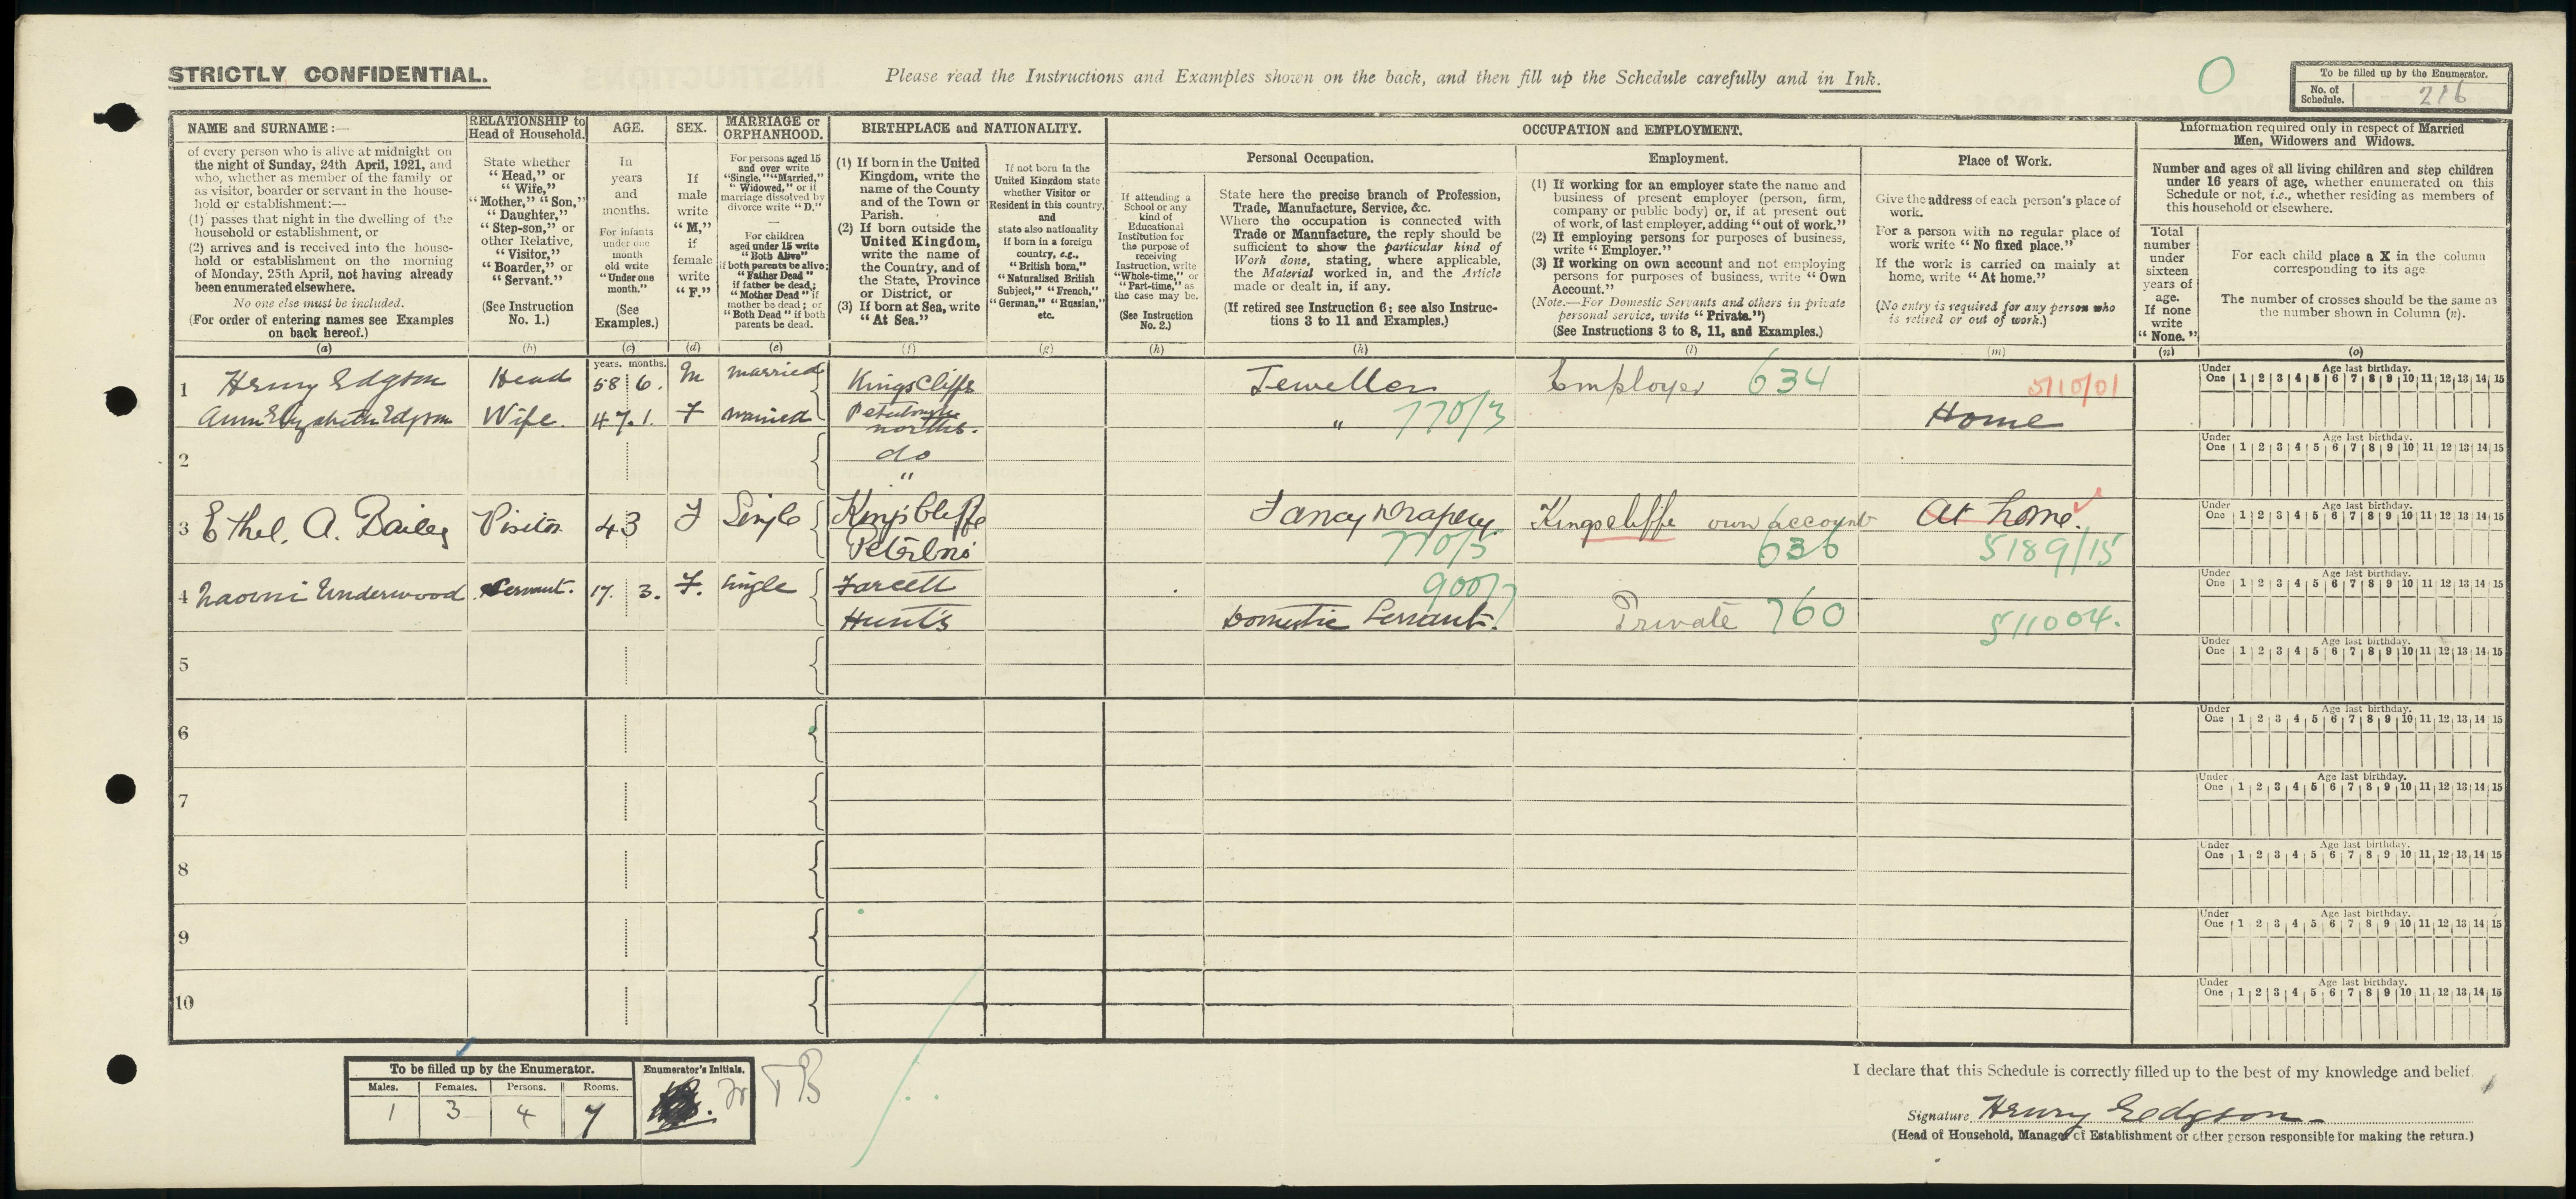 STRICTLY CONFIDENTIAL.
Please read the Instructions and Examples shown on the back, and then fill up the Schedule carefully and in Ink.
O
To be filled up by the Enumerator.
No. of Schedule. 216
NAME and SURNAME:—
of every person who is alive at midnight on
the night of Sunday, 24th April, 1921, and
who, whether as member of the family or
as visitor, boarder or servant in the house-
hold or establishment:—
(1) passes that night in the dwelling of the
household or establishment, or
(2) arrives and is received into the house-
hold or establishment on the morning
of Monday, 25th April, not having already
been enumerated elsewhere.
No one else must be included.
(For order of entering names see Examples
on back hereof.)
(a)
RELATIONSHIP to
Head of Household.
State whether
"Head," or
"Wife,"
"Mother," "Son,"
"Daughter,"
"Step-son," or
other Relative,
"Visitor,"
"Boarder," or
"Servant."
(See Instruction
No. 1.)
(b)
AGE.
In
years
and
months.
For infants
under one
month
old write
"Under one
month."
(See
Examples.)
(c)
SEX.
If
male
write
"M,"
if
female
write
"F."
(d)
MARRIAGE or
ORPHANHOOD.
For persons aged 15
and over write
"Single," "Married,"
"Widowed," or if
marriage dissolved by
divorce write "D."
—
For children
aged under 15 write
"Both Alive"
if both parents be alive;
"Father Dead"
if father be dead;
"Mother Dead" if
mother be dead; or
"Both Dead" if both
parents be dead.
(e)
BIRTHPLACE and NATIONALITY.
(1) If born in the United
Kingdom, write the
name of the County
and of the Town or
Parish.
(2) If born outside the
United Kingdom,
write the name of
the Country, and of
the State, Province
or District, or
(3) If born at Sea, write
"At Sea."
(f)
If not born in the
United Kingdom state
whether Visitor or
Resident in this country,
and
state also nationality
if born in a foreign
country, e.g.,
"British born,"
"Naturalised British
Subject," "French,"
"German," "Russian,"
etc.
(g)
OCCUPATION and EMPLOYMENT.
If attending a
School or any
kind of
Educational
Institution for
the purpose of
receiving
Instruction, write
"Whole-time," or
"Part-time," as
the case may be.
(See Instruction
No. 2.)
(h)
Personal Occupation.
State here the precise branch of Profession,
Trade, Manufacture, Service, &c.
Where the occupation is connected with
Trade or Manufacture, the reply should be
sufficient to show the particular kind of
Work done, stating, where applicable,
the Material worked in, and the Article
made or dealt in, if any.
(If retired see Instruction 6; see also Instruc-
tions 3 to 11 and Examples.)
(k)
Employment.
(1) If working for an employer state the name and
business of present employer (person, firm,
company or public body) or, if at present out
of work, of last employer, adding "out of work."
(2) If employing persons for purposes of business,
write "Employer."
(3) If working on own account and not employing
persons for purposes of business, write "Own
Account."
(Note.—For Domestic Servants and others in private
personal service, write "Private.")
(See Instructions 3 to 8, 11, and Examples.)
(l)
Place of Work.
Give the address of each person's place of
work.
For a person with no regular place of
work write "No fixed place."
If the work is carried on mainly at
home, write "At home."
(No entry is required for any person who
is retired or out of work.)
(m)
Information required only in respect of Married
Men, Widowers and Widows.
Number and ages of all living children and step children
under 16 years of age, whether enumerated on this
Schedule or not, i.e., whether residing as members of
this household or elsewhere.
Total
number
under
sixteen
years of
age.
If none
write
"None."
(n)
For each child place a X in the column
corresponding to its age
The number of crosses should be the same as
the number shown in Column (n).
(o)
years. months.
1 Henry Edgson Head 58 6. M married Kings Cliffe Jeweller Employer 634 5110/01
Peterborough
Norths.
Ann Elizabeth Edgson Wife. 47. 1. F married " 770/3 Home
2 do
"
3 Ethel. A. Bailey Visitor 43 F Single King's Cliffe Fancy Drapery Kingscliffe own account At home.
Peterboro' 770/5 636 5189/15
4 Naomi Underwood Servant. 17. 3. F. Single Farcett 900/7
Hunts Domestic Servant. Private 760 511004.
5
6
7
8
9
10
Under One Age last birthday. 1 2 3 4 5 6 7 8 9 10 11 12 13 14 15
Under One Age last birthday. 1 2 3 4 5 6 7 8 9 10 11 12 13 14 15
Under One Age last birthday. 1 2 3 4 5 6 7 8 9 10 11 12 13 14 15
Under One Age last birthday. 1 2 3 4 5 6 7 8 9 10 11 12 13 14 15
Under One Age last birthday. 1 2 3 4 5 6 7 8 9 10 11 12 13 14 15
Under One Age last birthday. 1 2 3 4 5 6 7 8 9 10 11 12 13 14 15
Under One Age last birthday. 1 2 3 4 5 6 7 8 9 10 11 12 13 14 15
Under One Age last birthday. 1 2 3 4 5 6 7 8 9 10 11 12 13 14 15
Under One Age last birthday. 1 2 3 4 5 6 7 8 9 10 11 12 13 14 15
Under One Age last birthday. 1 2 3 4 5 6 7 8 9 10 11 12 13 14 15
To be filled up by the Enumerator.
Males. Females. Persons. Rooms.
1 3 4 7
Enumerator's Initials.
TB
I declare that this Schedule is correctly filled up to the best of my knowledge and belief.
Signature Henry Edgson
(Head of Household, Manager of Establishment or other person responsible for making the return.)